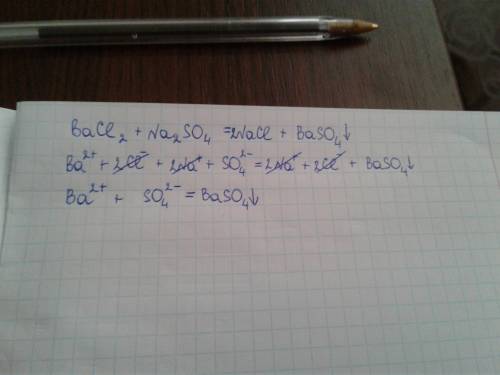 BaCl₂ + Na₂SO₄ = 2NaCl + BaSO₄↓
Ba²⁺ + 2Cl⁻ + 2Na⁺ + SO₄²⁻ = 2Na⁺ + 2Cl⁻ + BaSO₄↓
Ba²⁺ + SO₄²⁻ = BaSO₄↓